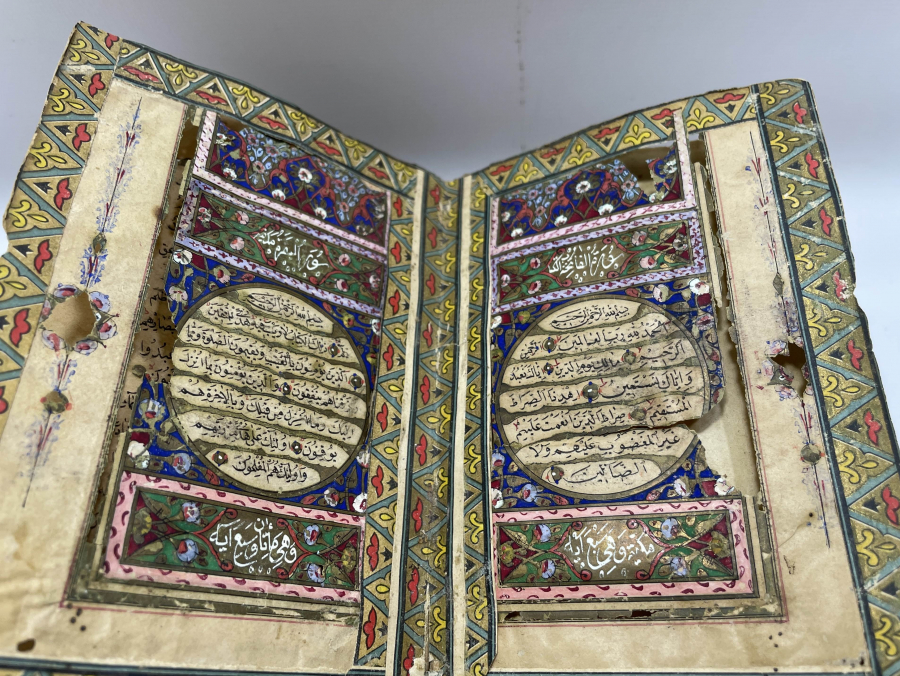 سورة الفاتحة
بسم الله الرحمن الرحيم
الحمد لله رب العالمين
الرحمن الرحيم مالك يوم الدين اياك نعبد
واياك نستعين اهدنا الصراط
المستقيم صراط الذين انعمت عليهم
غير المغضوب عليهم ولا
الضالين
مكية وهي سبع آية
سورة البقرة
بسم الله الرحمن الرحيم
الم ذلك الكتاب لا ريب فيه هدى للمتقين
الذين يؤمنون بالغيب ويقيمون الصلوة و
مما رزقناهم ينفقون والذين يؤمنون بما انزل
اليك وما انزل من قبلك وبالاخرة هم
يوقنون اولئك على هدى من ربهم
واولئك هم المفلحون
وهي مأتان وسبع آية